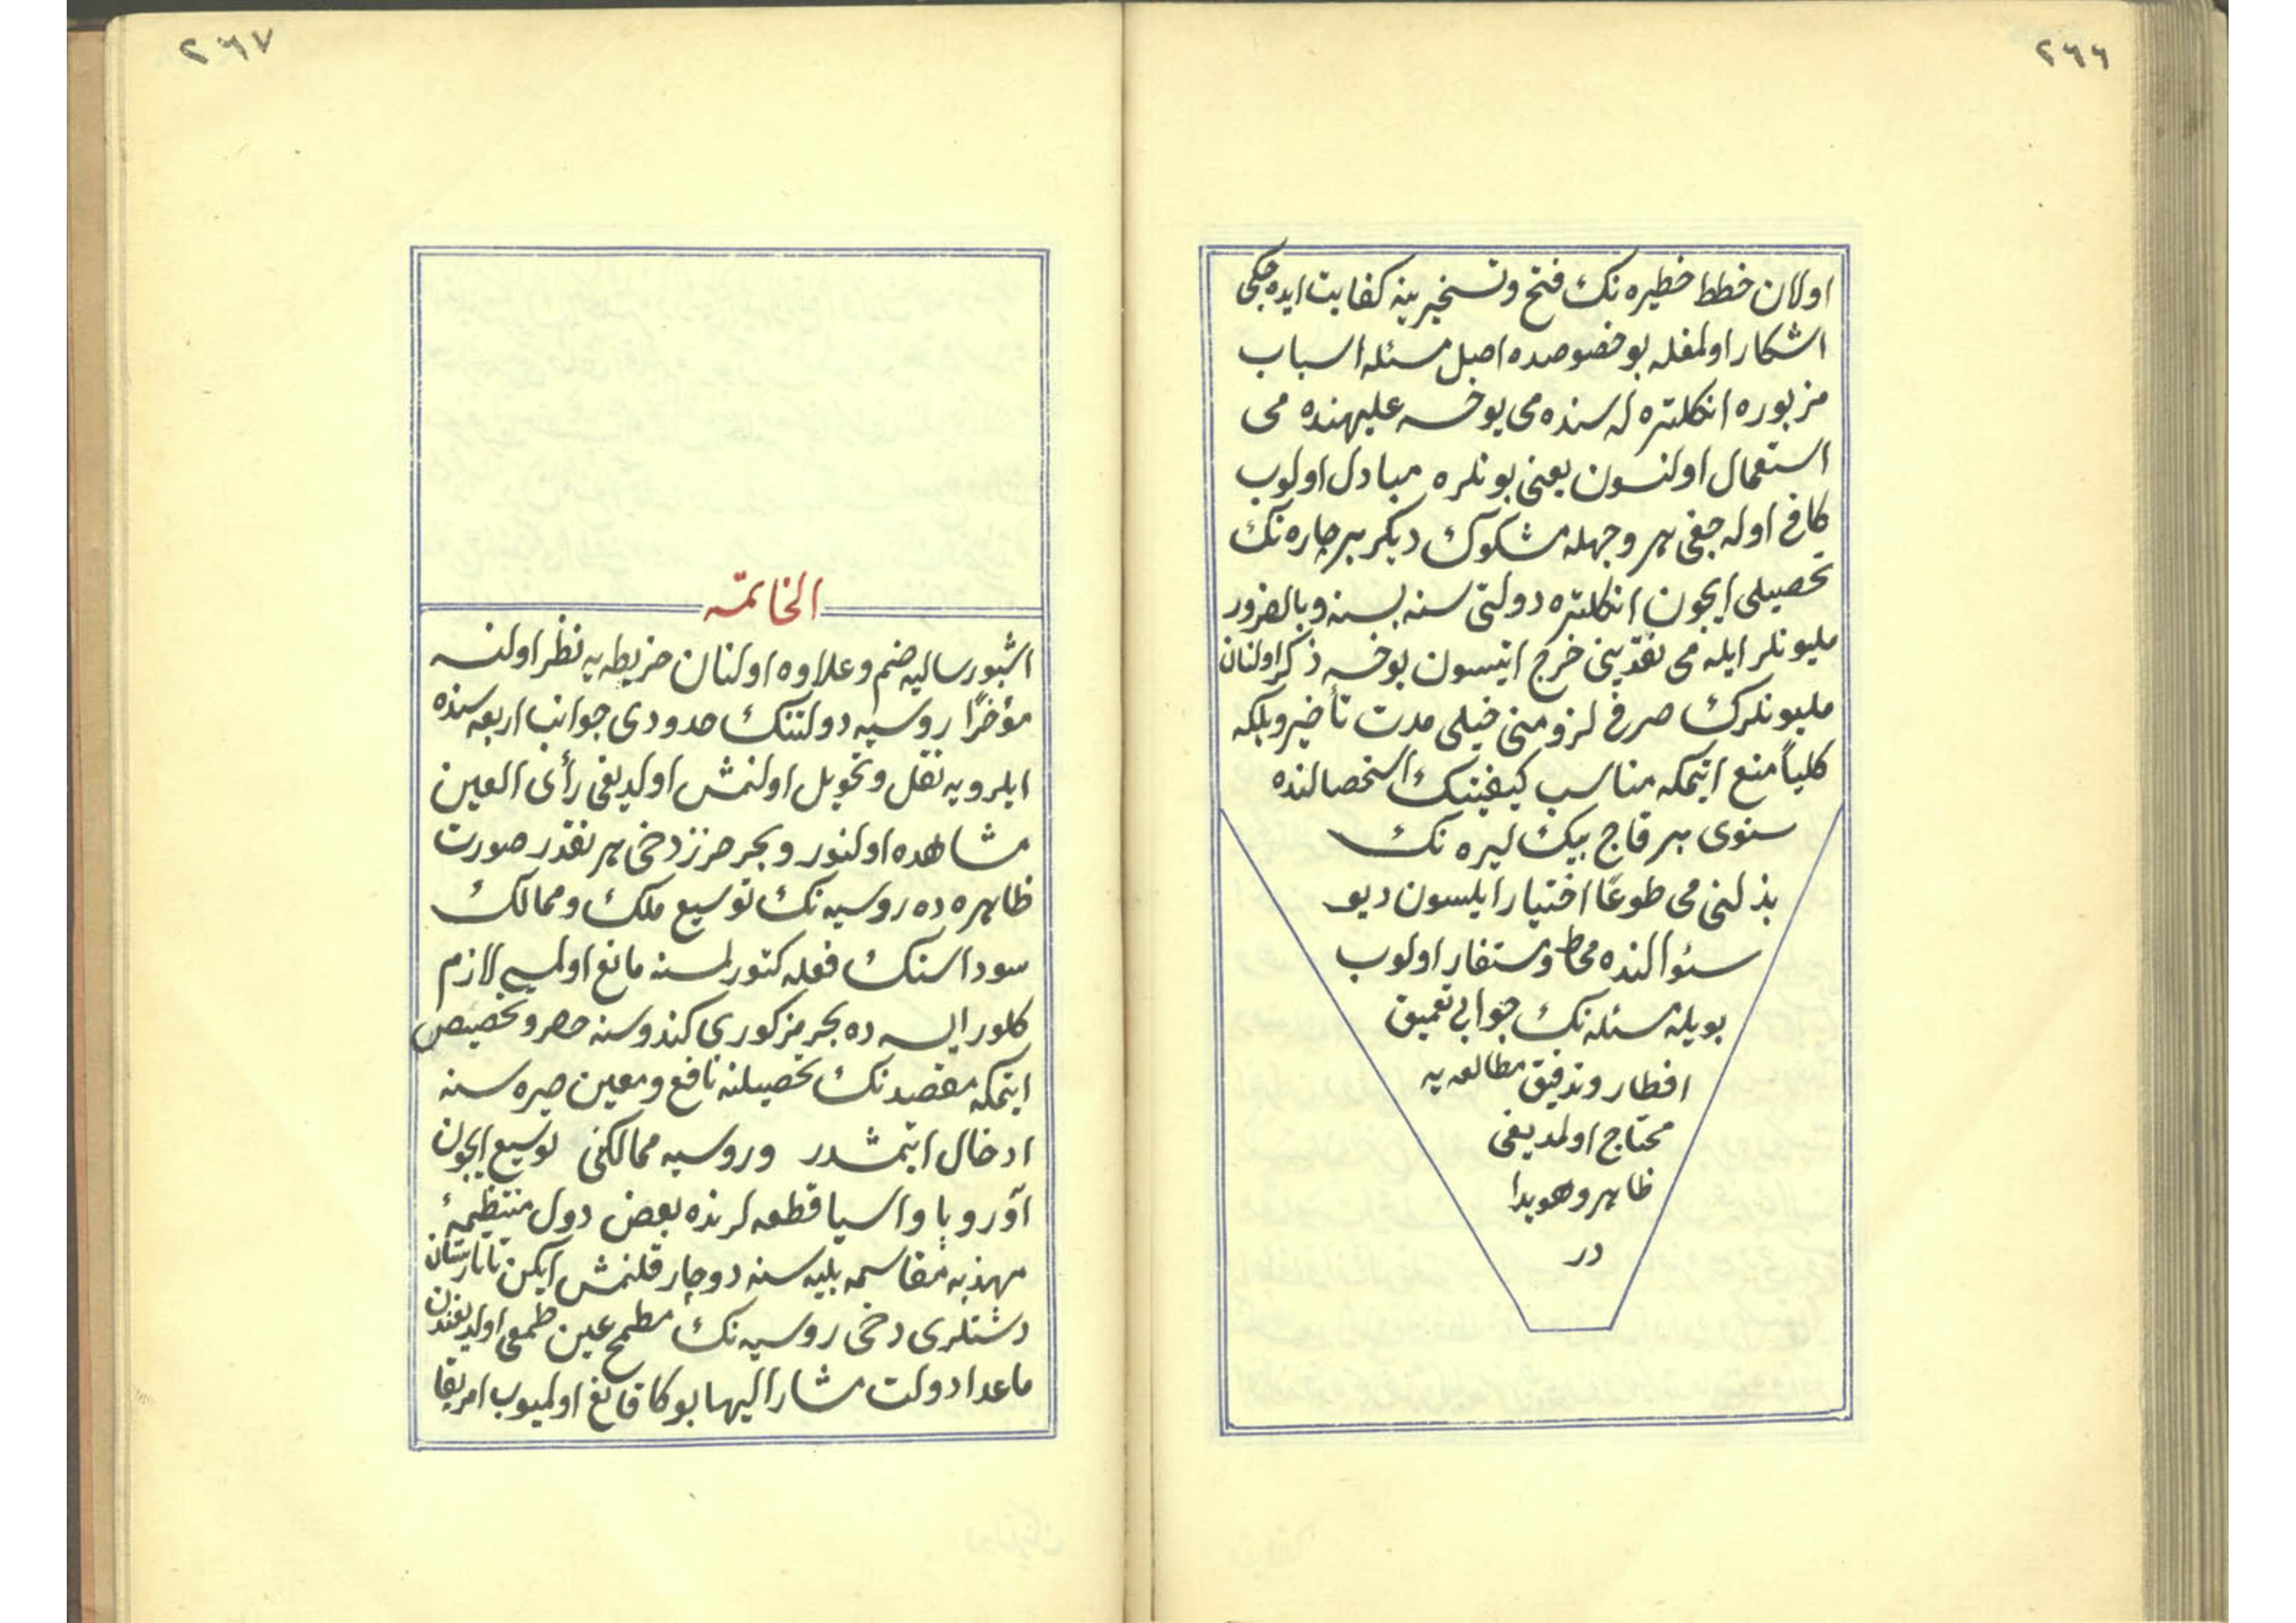 ٢٦٦
اولان خطط خطيره نك فتح وتسخيرينه كفايت ايده جكى
اشكار اولمغله بو خصوصده اصل مسئله اسباب
مزبوره انكلتره له سنده مى يوخسه عليهنده مى
استعمال اولنسون يعنى بونلره مبادل اولوب
كافى اوله جغى هر وجهله مشكوك ديكر بر چاره نك
تحصيلى ايچون انكلتره دولتى سنه بسنه وبالضرور
مليونلر ايله مى نقدينى خرج ايتسون يوخسه ذكر اولنان
مليونلرك صرفى لزومنى خيلى مدت تأخير وبلكه
كلياً منع ايتمكه مناسب كيفيتك استحصالنده
سنوى بر قاچ بيك ليره نك
بذلنى مى طوعاً اختيار ايلسون ديو
سئوالنده محاط ومستفاد اولوب
بويله مسئله نك جوابى تعميق
افطار وتدقيق مطالعه يه
محتاج اولمديغى
ظاهر وهويدا
در
٢٦٧
الخاتمه
اشبو رساليه ضم وعلاوه اولنان خريطه يه نظر اولنسه
مؤخراً روسيه دولتنك حدودى جوانب اربعه سنده
ايلرويه نقل وتحويل اولنمش اولديغى رأى العين
مشاهده اولنور وبحر خزر دخى هر نقدر صورت
ظاهره ده روسيه نك توسيع ملك وممالك
سوداسنك فعله كتورلمسنه مانع اولمسى لازم
كلور ايسه ده بحر مزكورى كندوسنه حصر وتخصيص
ايتمكه مقصدنك تحصيلنه نافع ومعين صره سنه
ادخال ايتمشدر وروسيه ممالكنى توسيع ايچون
آوروپا واسيا قطعه لرنده بعض دول منتظيمۀ
مهذبه مقاسمه بليه سنه دوچار قلنمش ايكن تاتارستان
دشتلرى دخى روسيه نك مطمح عين طمعى اولديغندن
ماعدا دولت مشار اليها بوكا قانع اولميوب امريقا